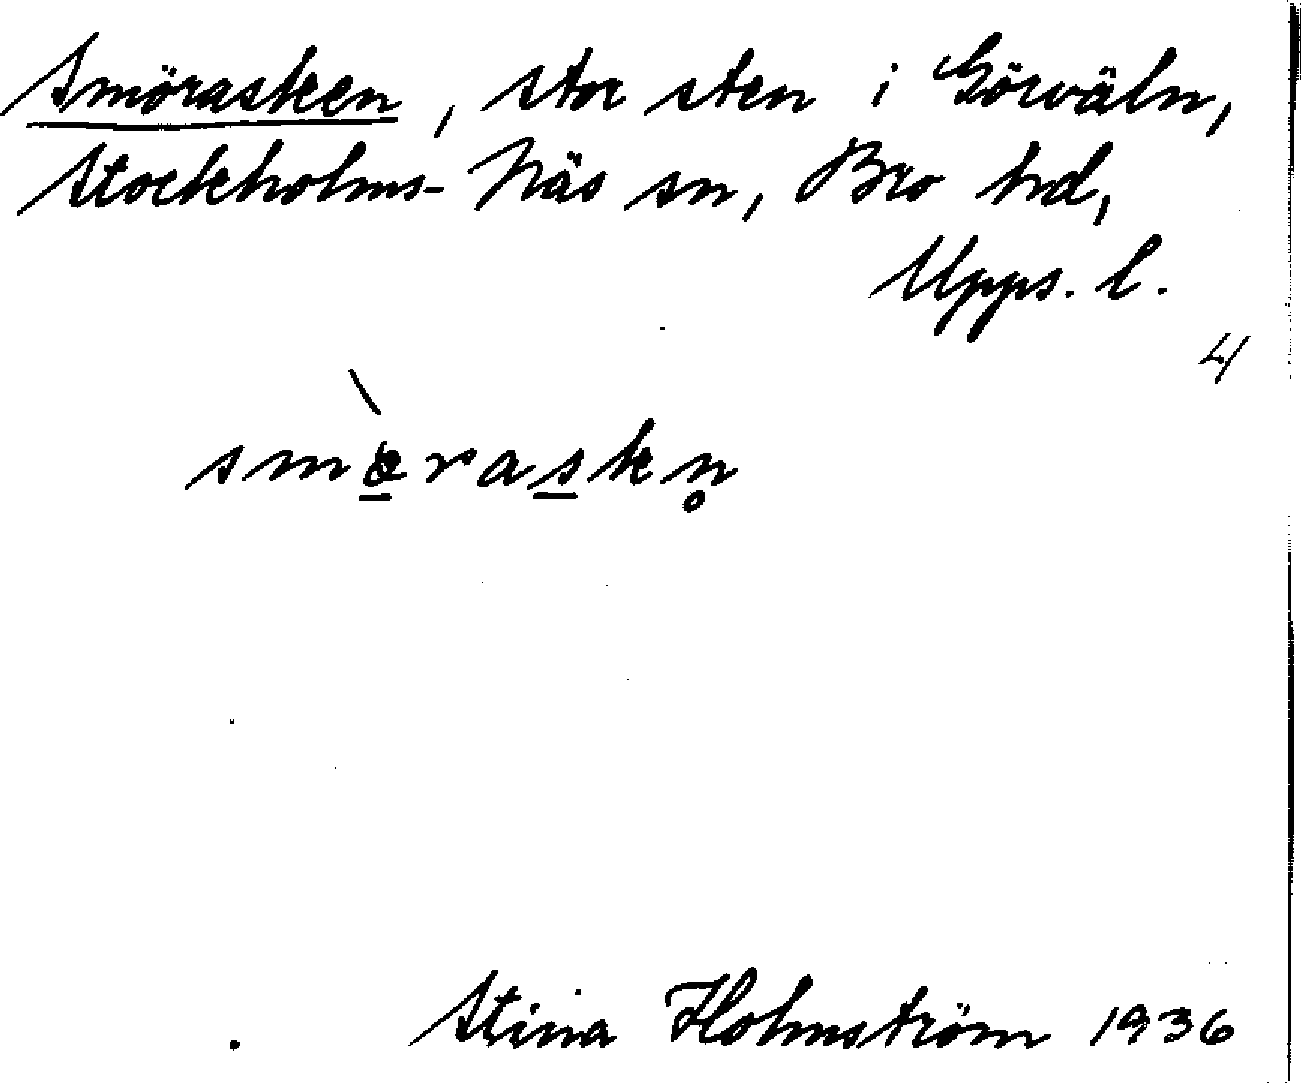 Smörasken, stor sten i Görväln,
Stockholms-Näs sn, Bro hd,
Upps. l.
4
smö̀raskn̥
Stina Holmström 1936